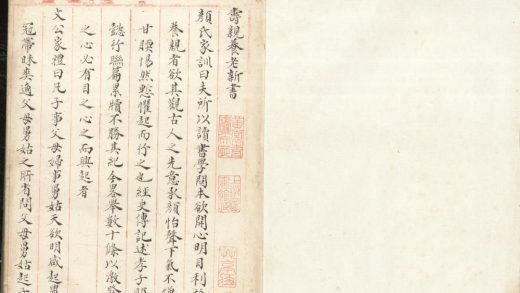 壽親養老新書
顔氏家訓曰夫所以讀書學問本欲開心明目利
養親者欲其觀古人之先意承顔怡聲下氣不
甘腝惕然慙懼起而行之也經史傳記述孝子
懿行聯篇累牘不勝其紀今畧舉數十條以激
之心必有目之心之而興起者
文公家禮曰凡子事父母婦事舅姑天欲明咸起
冠帶昧爽適父母舅姑之所省問父母舅姑起